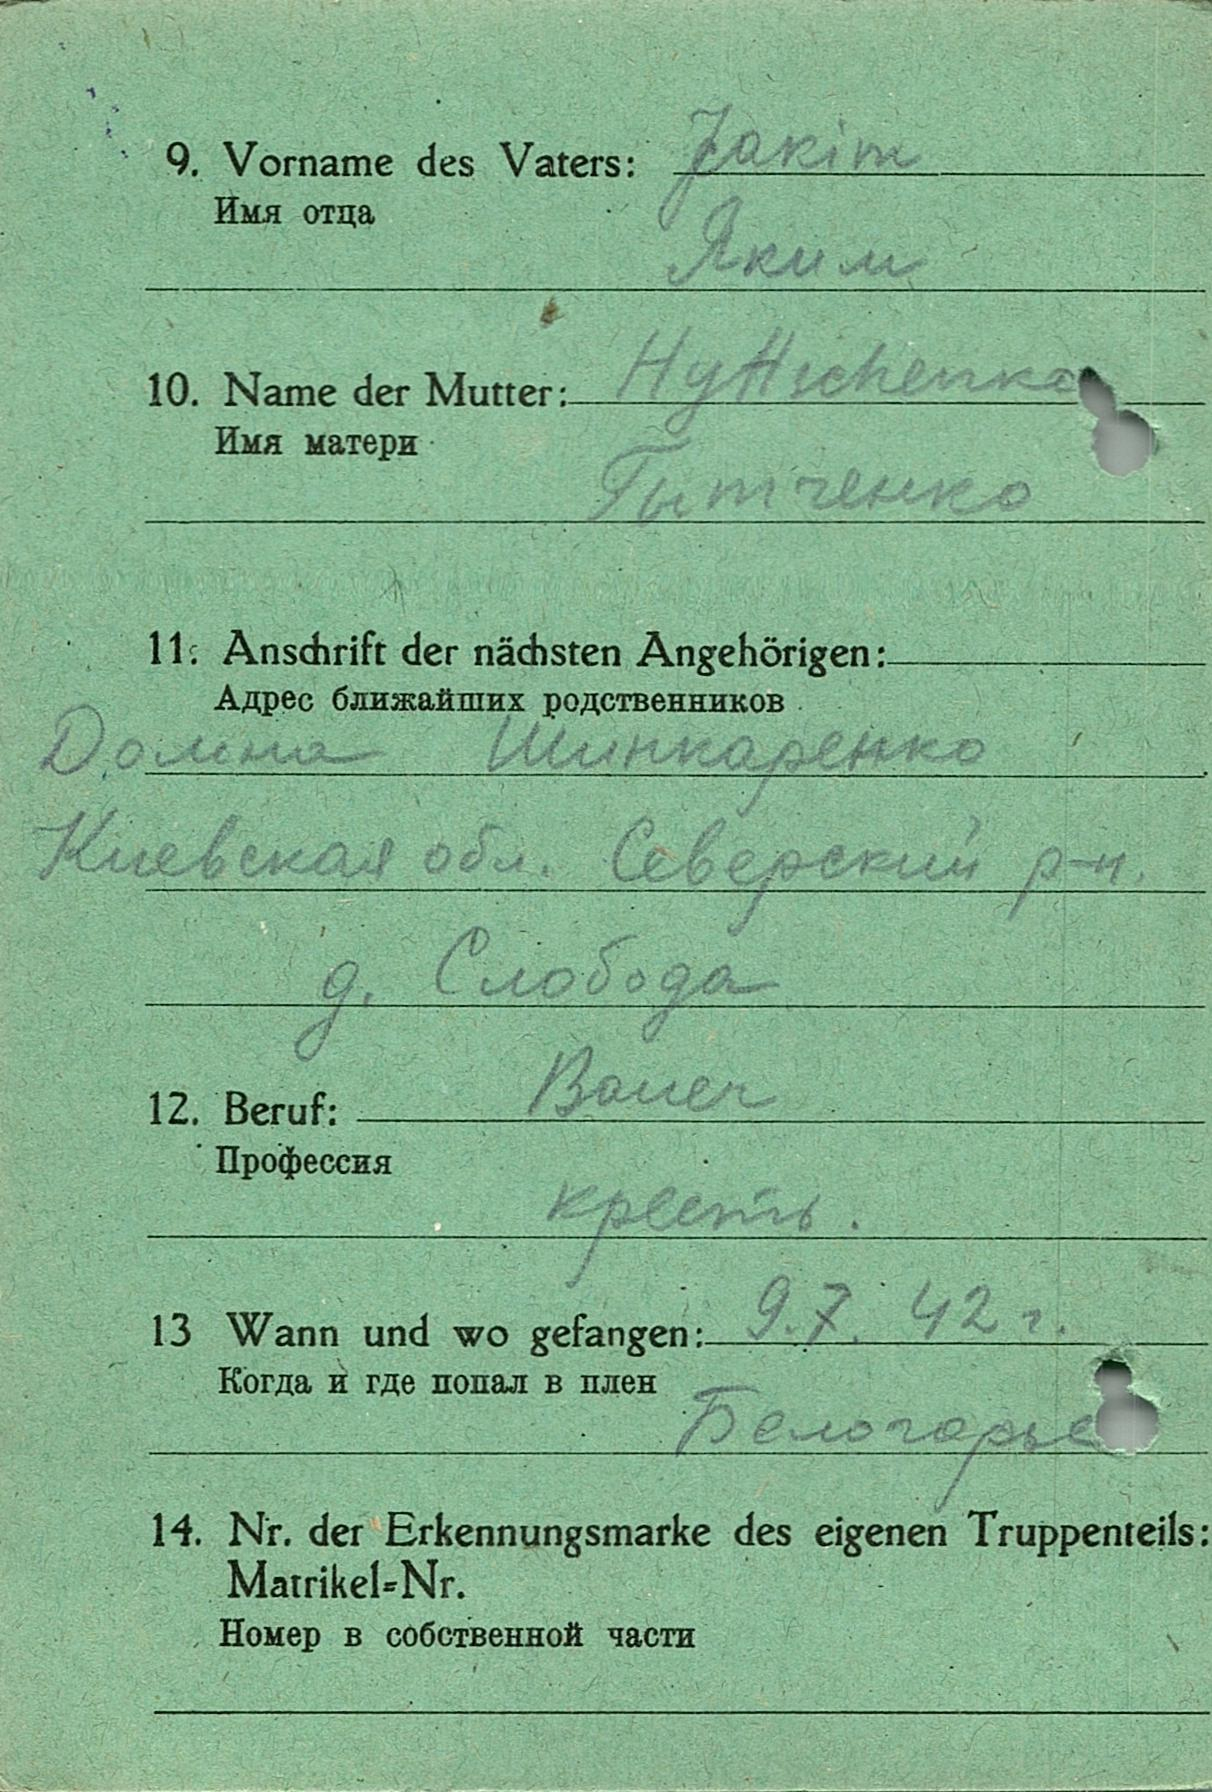 9. Vorname des Vaters: Jakim
Имя отца
Яким
10. Name der Mutter: Hyttichenko
Имя матери
Гытченко
11. Anschrift der nächsten Angehörigen:
Адрес ближайших родственников
Домна Шинкаренко
Киевская обл. Северский р-н.
д. Слобода
12. Beruf: Bauer
Профессия
кресть.
13 Wann und wo gefangen: 9.7.42 г.
Когда и где попал в плен
Белогорье
14. Nr. der Erkennungsmarke des eigenen Truppenteils:
Matrikel=Nr.
Номер в собственной части